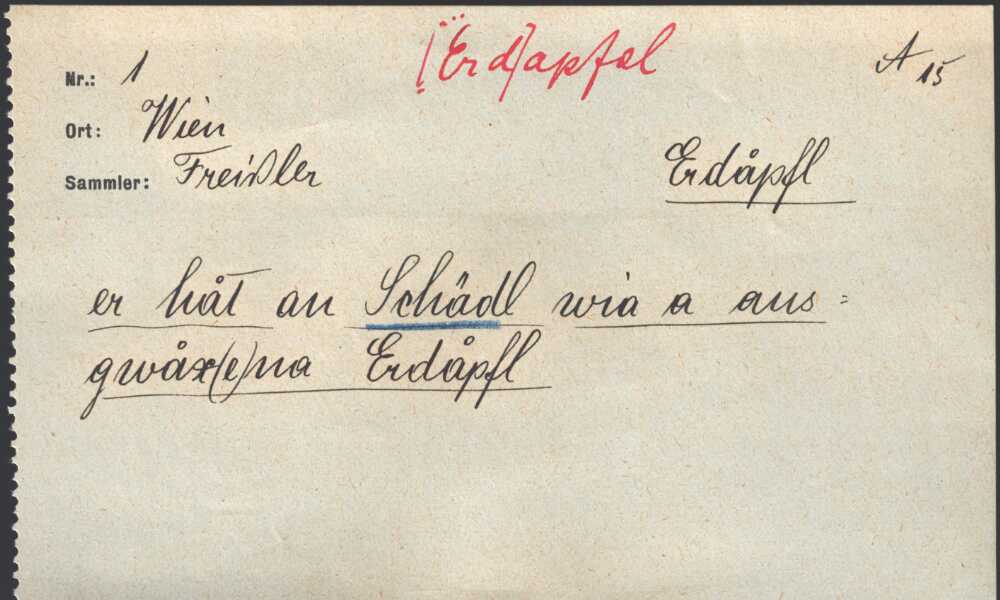 Nr.: 1
(Erd)apfel
A 15
Ort: Wien
Sammler: Freißler
Erdåpfl
er håt an Schädl wia a aus=
gwåx(e)na Erdåpfl